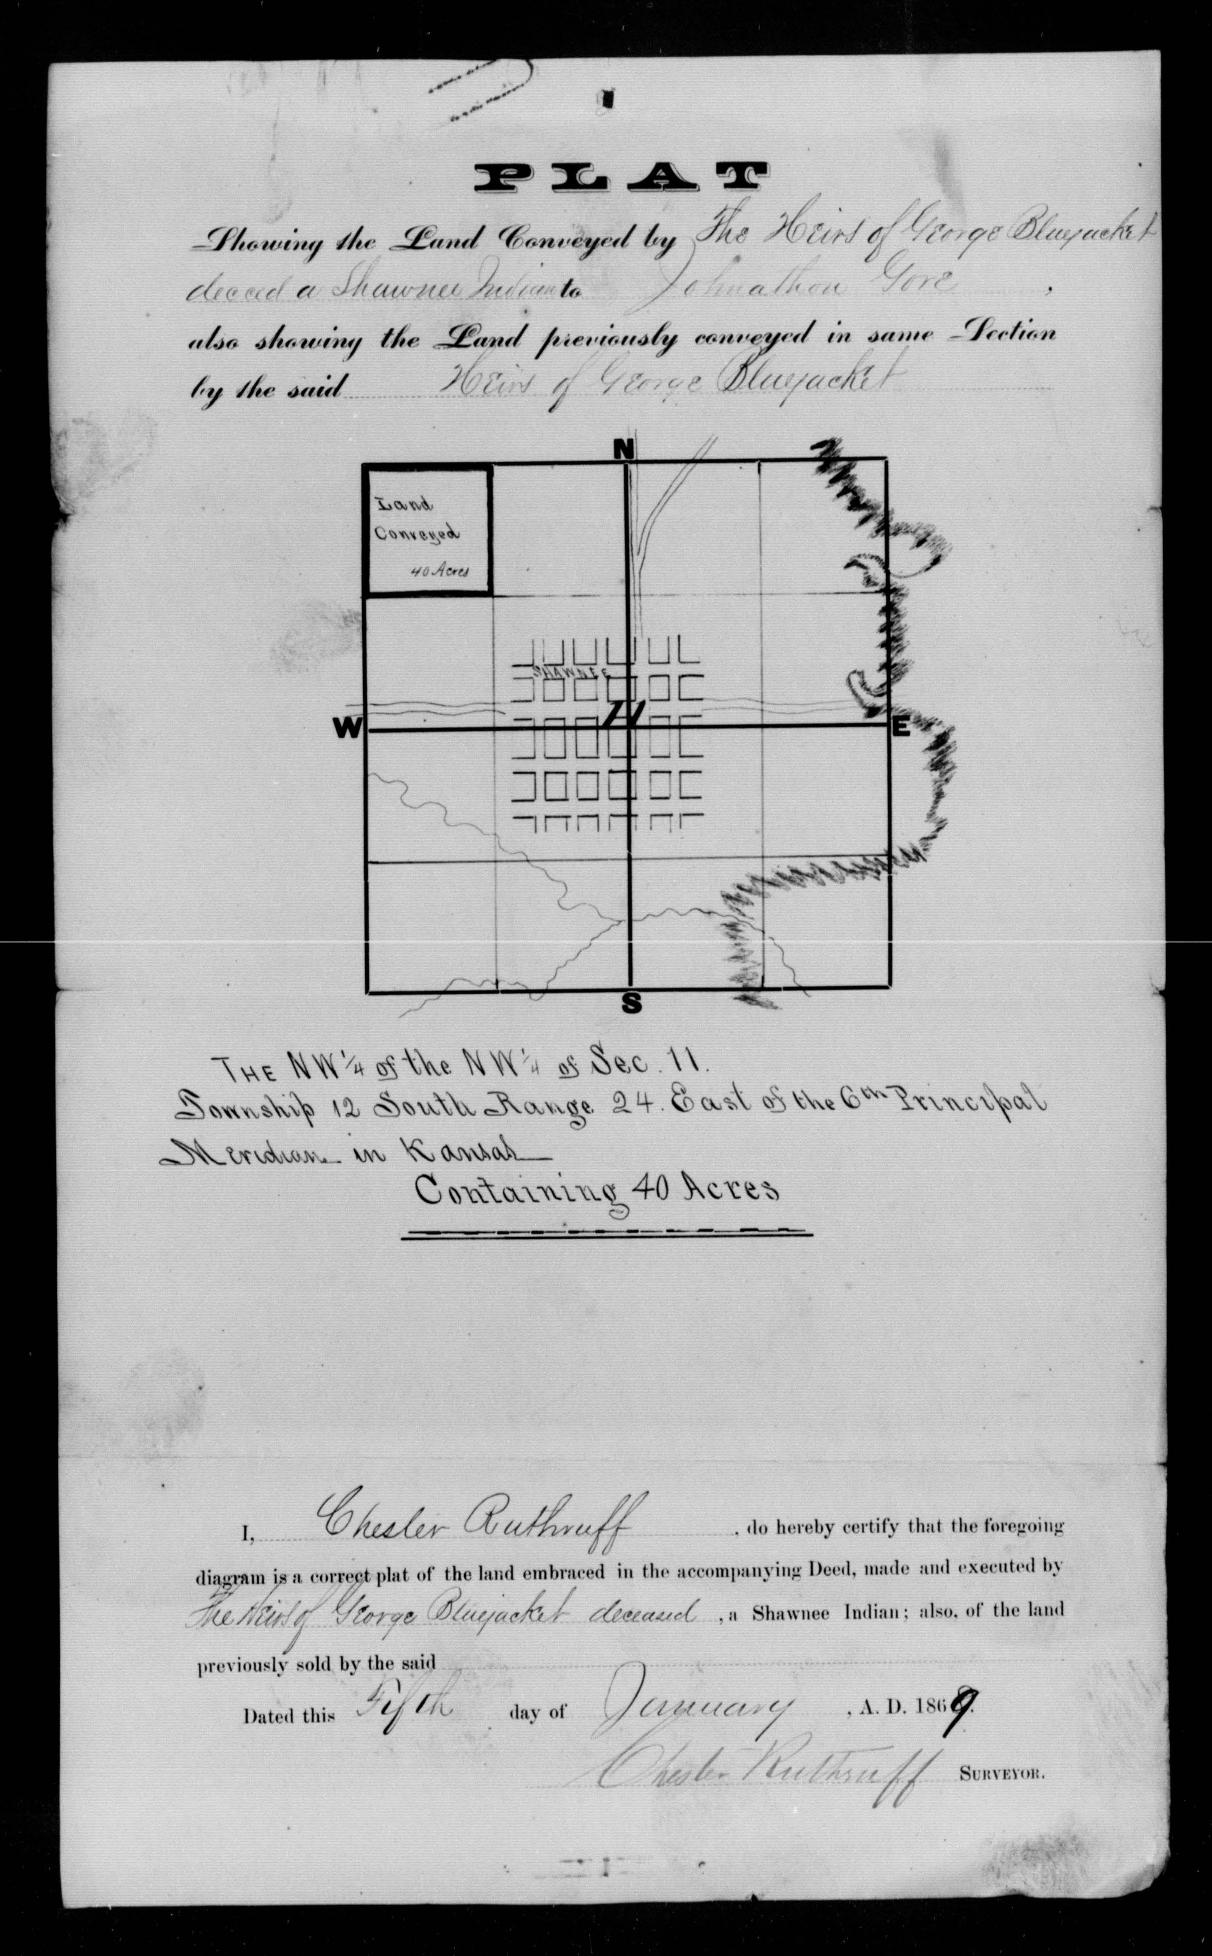 PLAT
Showing the Land Conveyed by The Heirs of George Bluejacket
deceed a Shawnee Indian to Johnathon Gore,
also showing the Land previously conveyed in same Section
by the said Heirs of George Bluejacket
N
Land
Conveyed
40 Acres
SHAWNEE
11
W
E
S
THE NW 1/4 of the NW 1/4 of Sec. 11.
Township 12 South Range 24. East of the 6th Principal
Meridian in Kansas
Containing 40 Acres
I, Chester Ruthruff, do hereby certify that the foregoing
diagram is a correct plat of the land embraced in the accompanying Deed, made and executed by
The Heirs of George Bluejacket deceased, a Shawnee Indian; also, of the land
previously sold by the said
Dated this Fifth day of January, A. D. 1869.
Chester Ruthruff SURVEYOR.